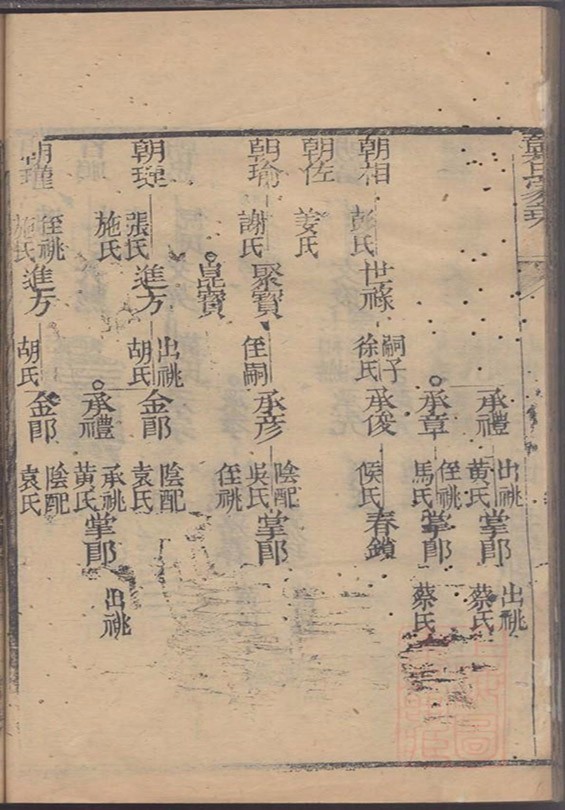 承禮 出祧 黃氏 掌郎 出祧 蔡氏
承章 侄祧 馬氏 掌郎 蔡氏
朝相 彭氏 世祿 嗣子 徐氏 承俊 侯氏 春鎖
朝佐 姜氏
朝瑜 謝氏 聚寶 侄嗣 承彥 陰配 吳氏 侄祧 掌郎
崑寶
朝 張氏 施氏 進方 出祧 胡氏 金郎 陰配 袁氏
承禮 承祧 黃氏 掌郎 出祧
朝瑾 侄祧 施氏 進方 胡氏 金郎 陰配 袁氏